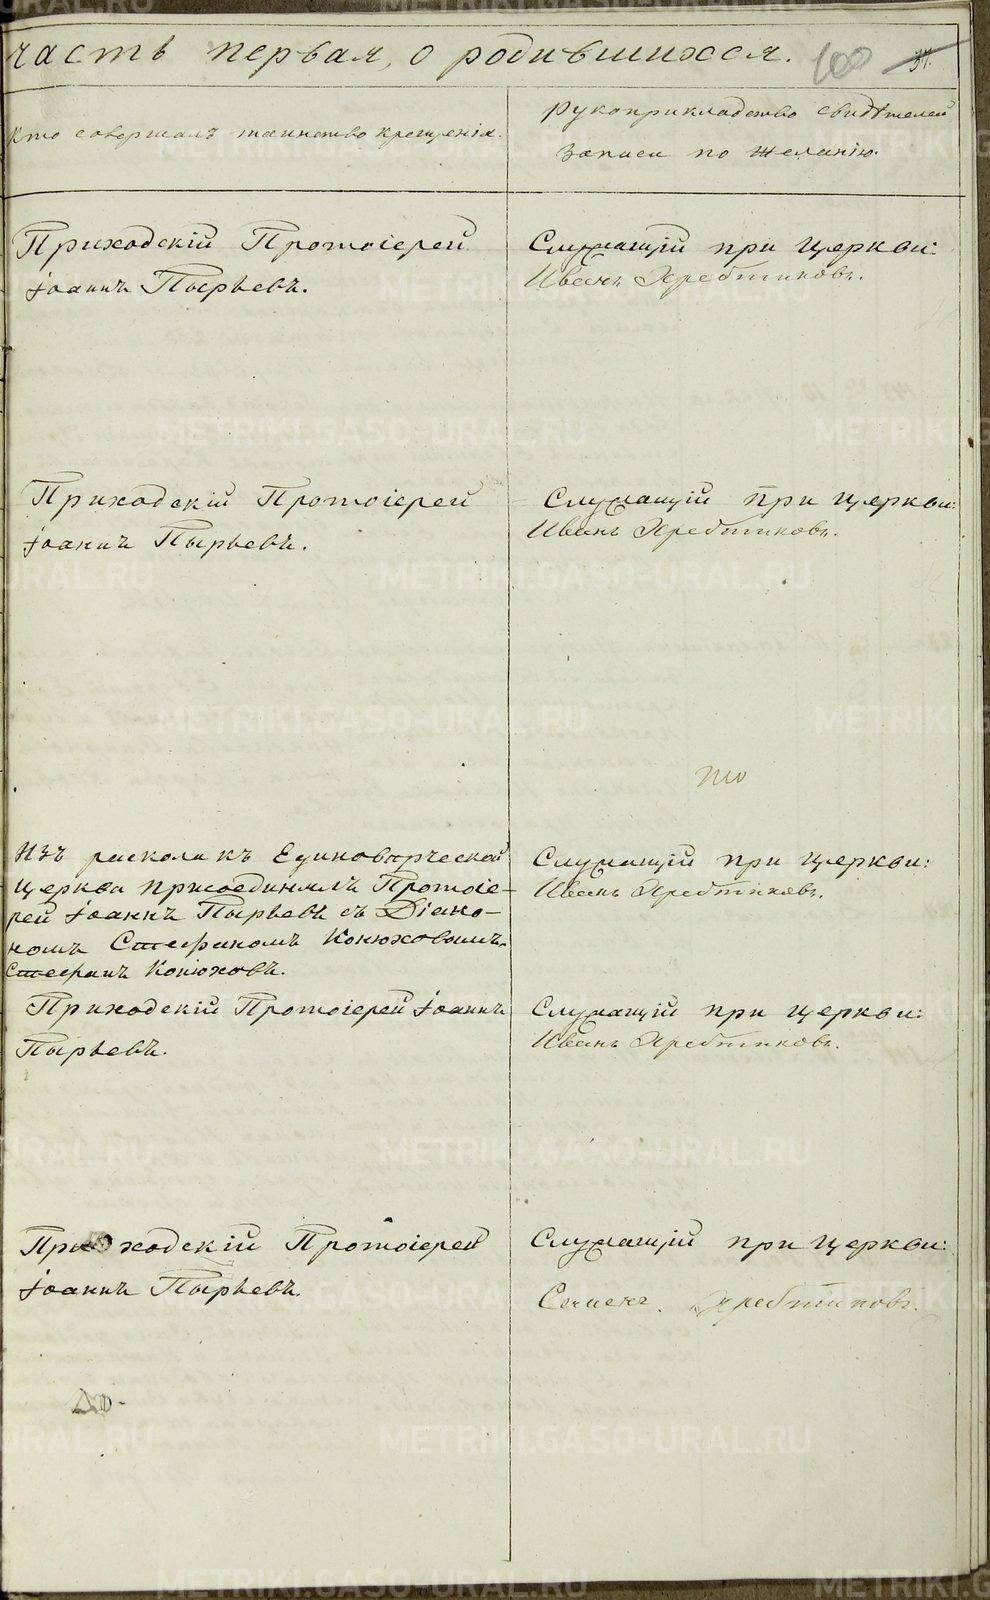 часть первая, о родившихся. 100
Кто совершалъ таинство крещенія.
Рукоприкладство свидѣтелей
записи по желанію.
Приходскій Протоіерей
Іоаннъ Пырьевъ.
Служащій при церкви:
Иванъ Хребтиковъ.
Приходскій Протоіерей
Іоаннъ Пырьевъ.
Служащій при церкви:
Иванъ Хребтиковъ.
то
Изъ раскола къ Единовѣрческой
церкви присоединилъ Протоіе-
рей Іоаннъ Пырьевъ съ Діако-
номъ Стефаномъ Конюховымъ.
Стефанъ Конюховъ.
Служащій при церкви:
Иванъ Хребтиковъ.
Приходскій Протоіерей Іоаннъ
Пырьевъ.
Служащій при церкви:
Иванъ Хребтиковъ.
Приходскій Протоіерей
Іоаннъ Пырьевъ.
Служащій при церкви:
Хребтиковъ.
METRIKI.GASO-URAL.RU